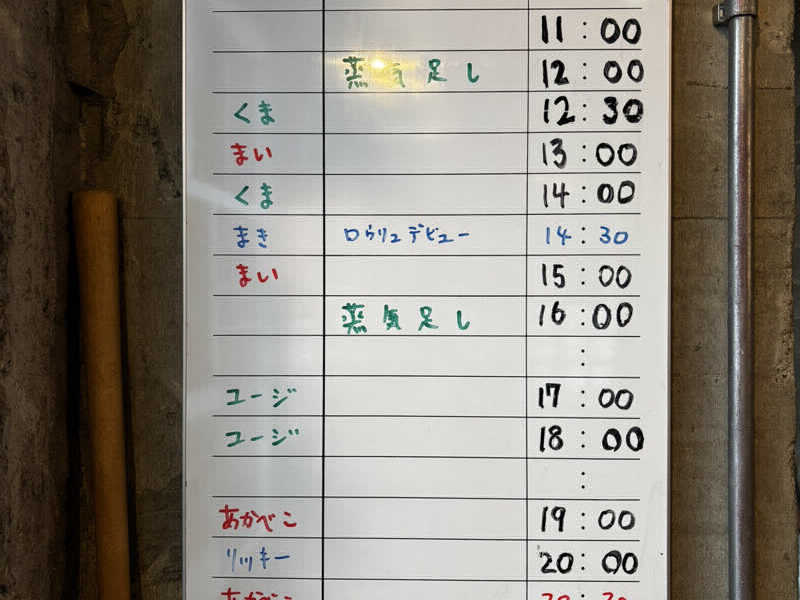 11:00
蒸気足し 12:00
くま 12:30
まい 13:00
くま 14:00
まき ロウリュデビュー 14:30
まい 15:00
蒸気足し 16:00
:
ユージ 17:00
ユージ 18:00
:
あかべこ 19:00
リッキー 20:00
あかべこ